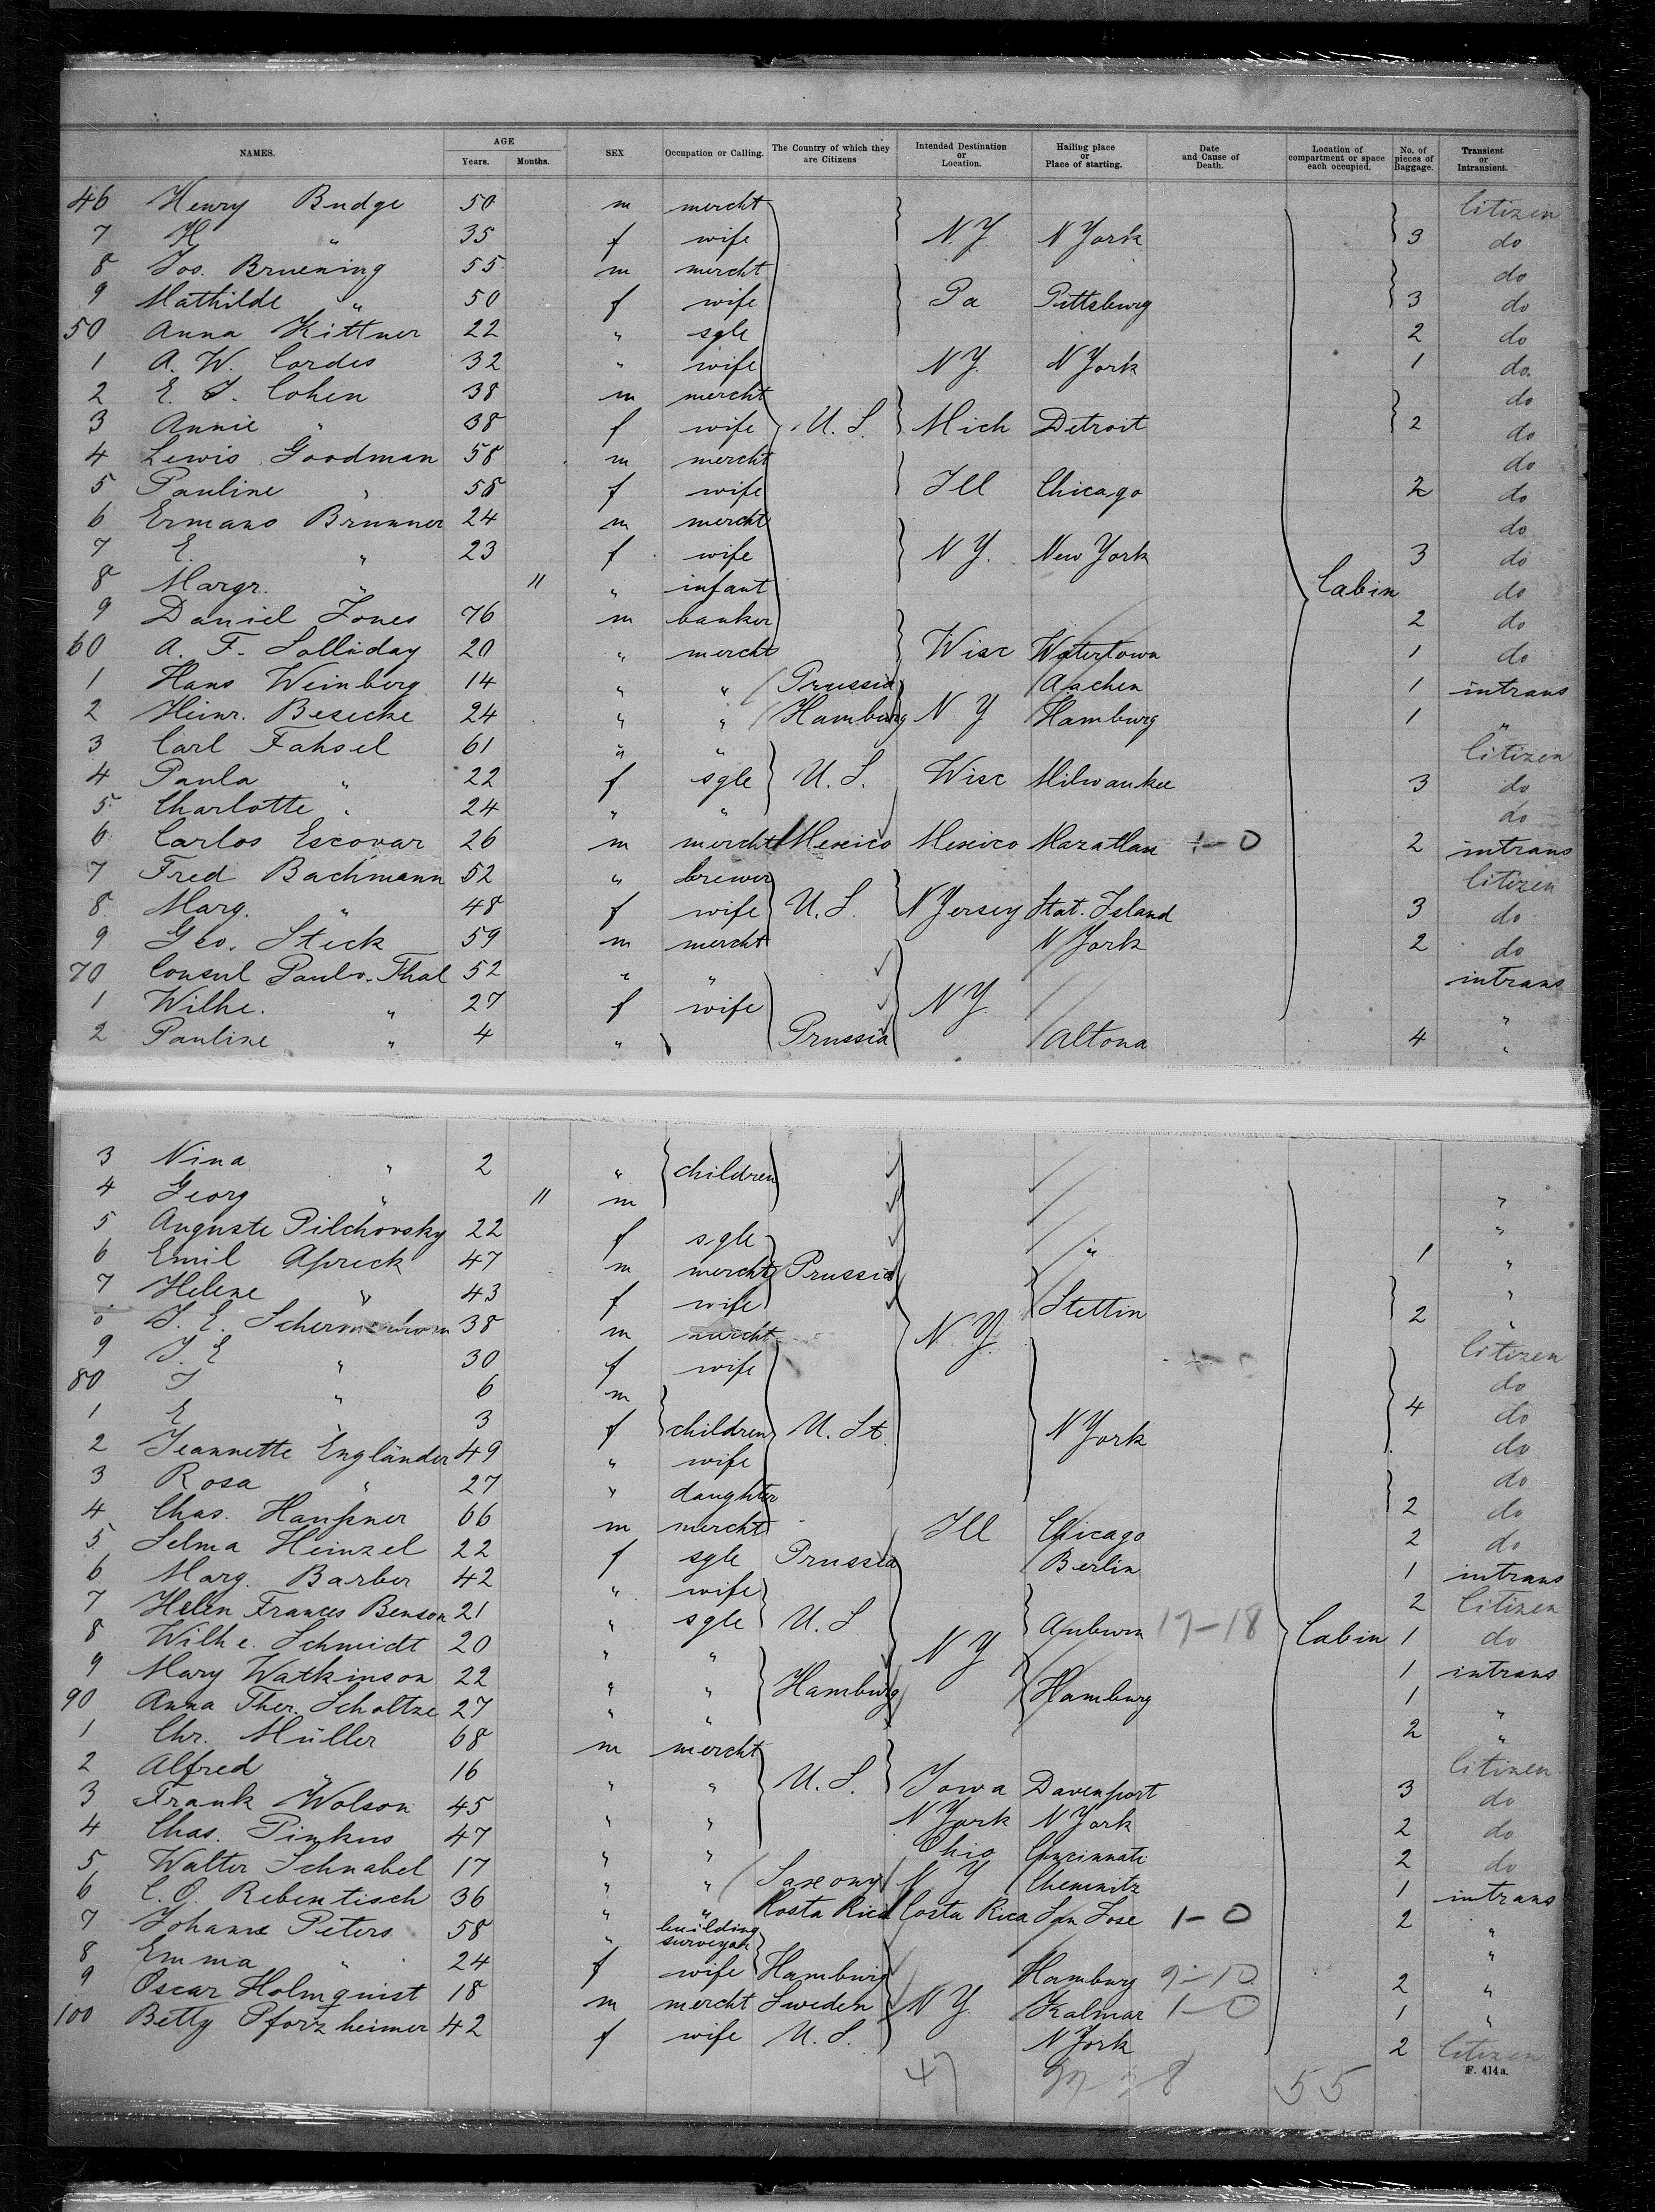 NAMES. AGE Years. Months. SEX Occupation or Calling. The Country of which they are Citizens Intended Destination or Location. Hailing place or Place of starting. Date and Cause of Death. Location of compartment or space each occupied. No. of pieces of Baggage. Transient or Intransient.
46 Henry Budge 50 m mercht Citizen
7 H " 35 f wife N.Y. N York 3 do
8 Jos. Bruening 55 m mercht do
9 Mathilde " 50 f wife Pa Pittsburg 3 do
50 Anna Kittner 22 " sgle 2 do
1 A. W. Cordes 32 " wife N Y. N York 1 do.
2 E. J. Cohen 38 m mercht do
3 Annie " 38 f wife U. S. Mich Detroit 2 do
4 Lewis Goodman 58 m mercht do
5 Pauline " 58 f wife Ill Chicago 2 do
6 Ermano Brunner 24 m mercht do
7 E. " 23 f wife N Y. New York 3 do
8 Margr. " 11 " infant Cabin do
9 Daniel Jones 76 m banker 2 do
60 A. F. Solliday 20 " mercht Wisc Watertown 1 do
1 Hans Weinberg 14 " " Prussia Aachen 1 intrans
2 Heinr. Besecke 24 " " Hamburg N Y Hamburg 1 "
3 Carl Fahsel 61 " " Citizen
4 Paula " 22 f sgle U. S. Wisc Milwaukee 3 do
5 Charlotte " 24 " " do
6 Carlos Escovar 26 m mercht Mexico Mexico Mazatlan 1-0 2 intrans
7 Fred Bachmann 52 " brewer Citizen
8 Marg. " 48 f wife U. S. N Jersey Stat. Island 3 do
9 Geo. Steck 59 m mercht N York 2 do
70 Consul Paul v. Thal 52 " " intrans
1 Wilhe. " 27 f wife N Y. "
2 Pauline " 4 " Prussia Altona 4 "
3 Nina " 2 " children
4 Georg " 11 m "
5 Auguste Pilchovsky 22 f sgle " "
6 Emil Apreck 47 m mercht Prussia 1 "
7 Helene " 43 f wife Stettin "
8 J. E. Schermerhorn 38 m mercht N Y. 2 "
9 J. E " 30 f wife Citizen
80 J " 6 m do
1 E " 3 f children U. St. N York 4 do
2 Jeannette Engländer 49 " wife do
3 Rosa " 27 " daughter do
4 Chas. Haußner 66 m mercht Ill Chicago 2 do
5 Selma Heinzel 22 f sgle Prussia Berlin 2 do
6 Marg. Barber 42 " wife 1 intrans
7 Helen Frances Benson 21 " sgle U. S Auburn 17-18 2 Citizen
8 Wilhe. Schmidt 20 " " N Y Cabin 1 do
9 Mary Watkinson 22 " " Hamburg Hamburg 1 intrans
90 Anna Ther. Scholtze 27 " " 1 "
1 Chr. Müller 68 m mercht 2 "
2 Alfred " 16 " " U. S. Iowa Davenport Citizen
3 Frank Wolson 45 " " N York N York 3 do
4 Chas. Pinkus 47 " " Ohio Cincinnati 2 do
5 Walter Schnabel 17 " " Saxony N Y Chemnitz 2 do
6 C. O. Rebentisch 36 " " Costa Rica Costa Rica San Jose 1-0 1 intrans
7 Johann Peters 58 " building surveyor 2 "
8 Emma " 24 f wife Hamburg Hamburg 9-10 "
9 Oscar Holmquist 18 m mercht Sweden N Y. Kalmar 1-0 2 "
100 Betty Pforzheimer 42 f wife U. S. N York 1 "
2 Citizen
47 8 55
F. 414 a.